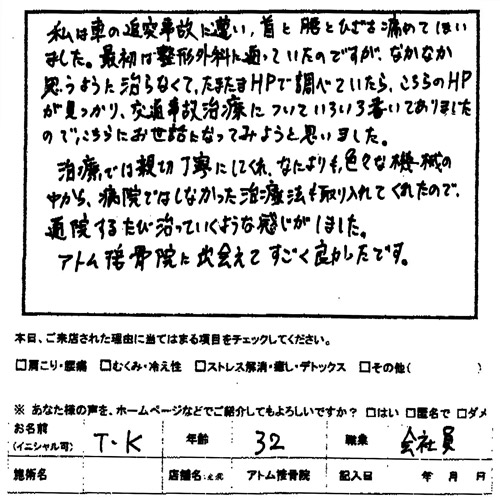 私は車の追突事故に遭い、首と腰とひざを痛めてしまい
ました。最初は整形外科に通っていたのですが、なかなか
思うように治らなくて、たまたまHPで調べていたら、こちらのHP
が見つかり、交通事故治療についていろいろ書いてありました
ので、こちらにお世話になってみようと思いました。
治療では親切丁寧にしてくれ、なによりも、色々な機械の
中から、病院ではしなかった治療法も取り入れてくれたので、
通院するたび治っていくような感じがしました。
アトム接骨院に出会えてすごく良かったです。
本日、ご来店された理由に当てはまる項目をチェックしてください。
□肩こり・腰痛 □むくみ・冷え性 □ストレス解消・癒し・デトックス □その他( )
※ あなた様の声を、ホームページなどでご紹介してもよろしいですか？ □はい □匿名で □ダメ
お名前
(イニシャル可) T・K 年齢 32 職業 会社員
施術名 店舗名: アトム接骨院 記入日 年 月 日